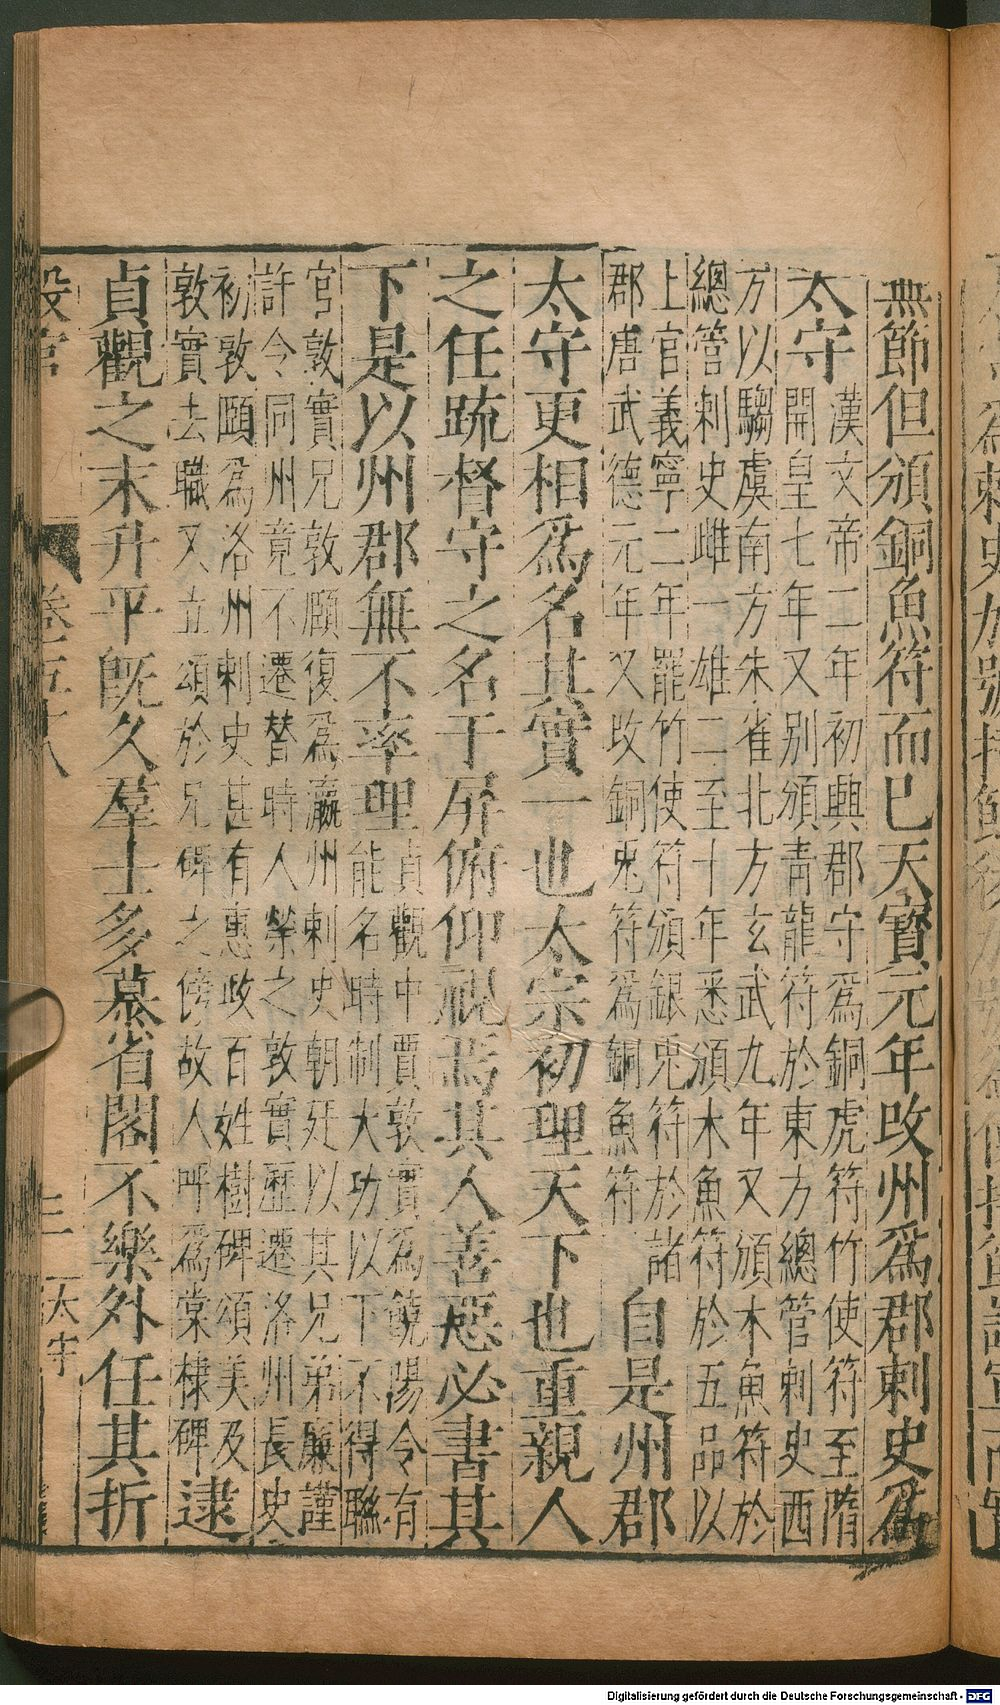 無節但頒銅魚符而已天寶元年改州爲郡刺史爲
太守
漢文帝二年初興郡守爲銅虎符竹使符至隋
開皇七年又別頒青龍符於東方總管刺史西
方以騶虞南方朱雀北方玄武九年又頒木魚符於
總管刺史雌一雄二至十年悉頒木魚符於五品以
上官義寧二年罷竹使符頒銀兎符於諸
郡唐武德元年又改銅兎符爲銅魚符
自是州郡
太守更相爲名其實一也太宗初理天下也重親人
之任疏督守之名于屏俯仰視焉其人善惡必書其
下是以州郡無不率理
貞觀中賈敦實爲饒陽令有
能名時制大功以下不得聯
官敦實兄敦頤復爲瀛州刺史朝廷以其兄弟廉謹
許令同州竟不遷替時人榮之敦實歷遷洛州長史
初敦頤爲洛州刺史甚有惠政百姓樹碑頌美及
敦實去職又立頌於兄碑之傍故人呼爲棠棣碑
逮
貞觀之末升平旣久羣士多慕省閣不樂外任其折
卷百十八
太守
Digitalisierung gefördert durch die Deutsche Forschungsgemeinschaft - DFG